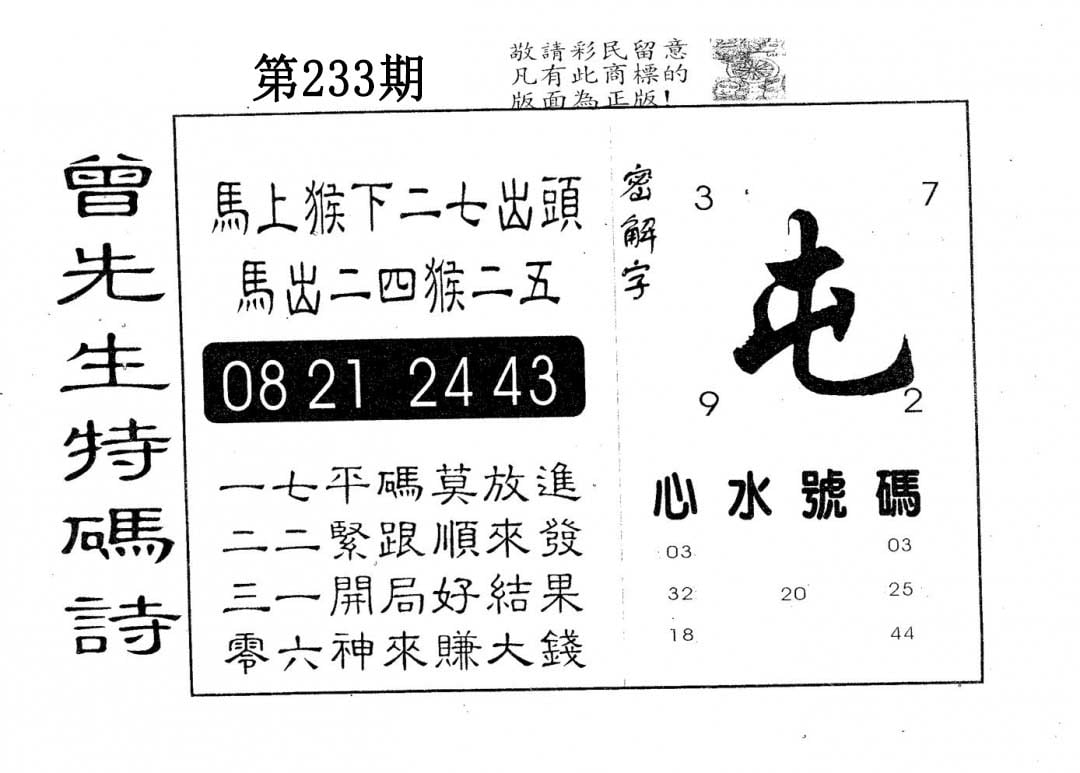 第233期
敬請彩民留意
凡有此商標的
版面為正版!
曾先生特碼詩
馬上猴下二七出頭
馬出二四猴二五
08 21 24 43
一七平碼莫放進
二二緊跟順來發
三一開局好結果
零六神來賺大錢
密解字
3 7
屯
9 2
心水號碼
03 03
32 20 25
18 44